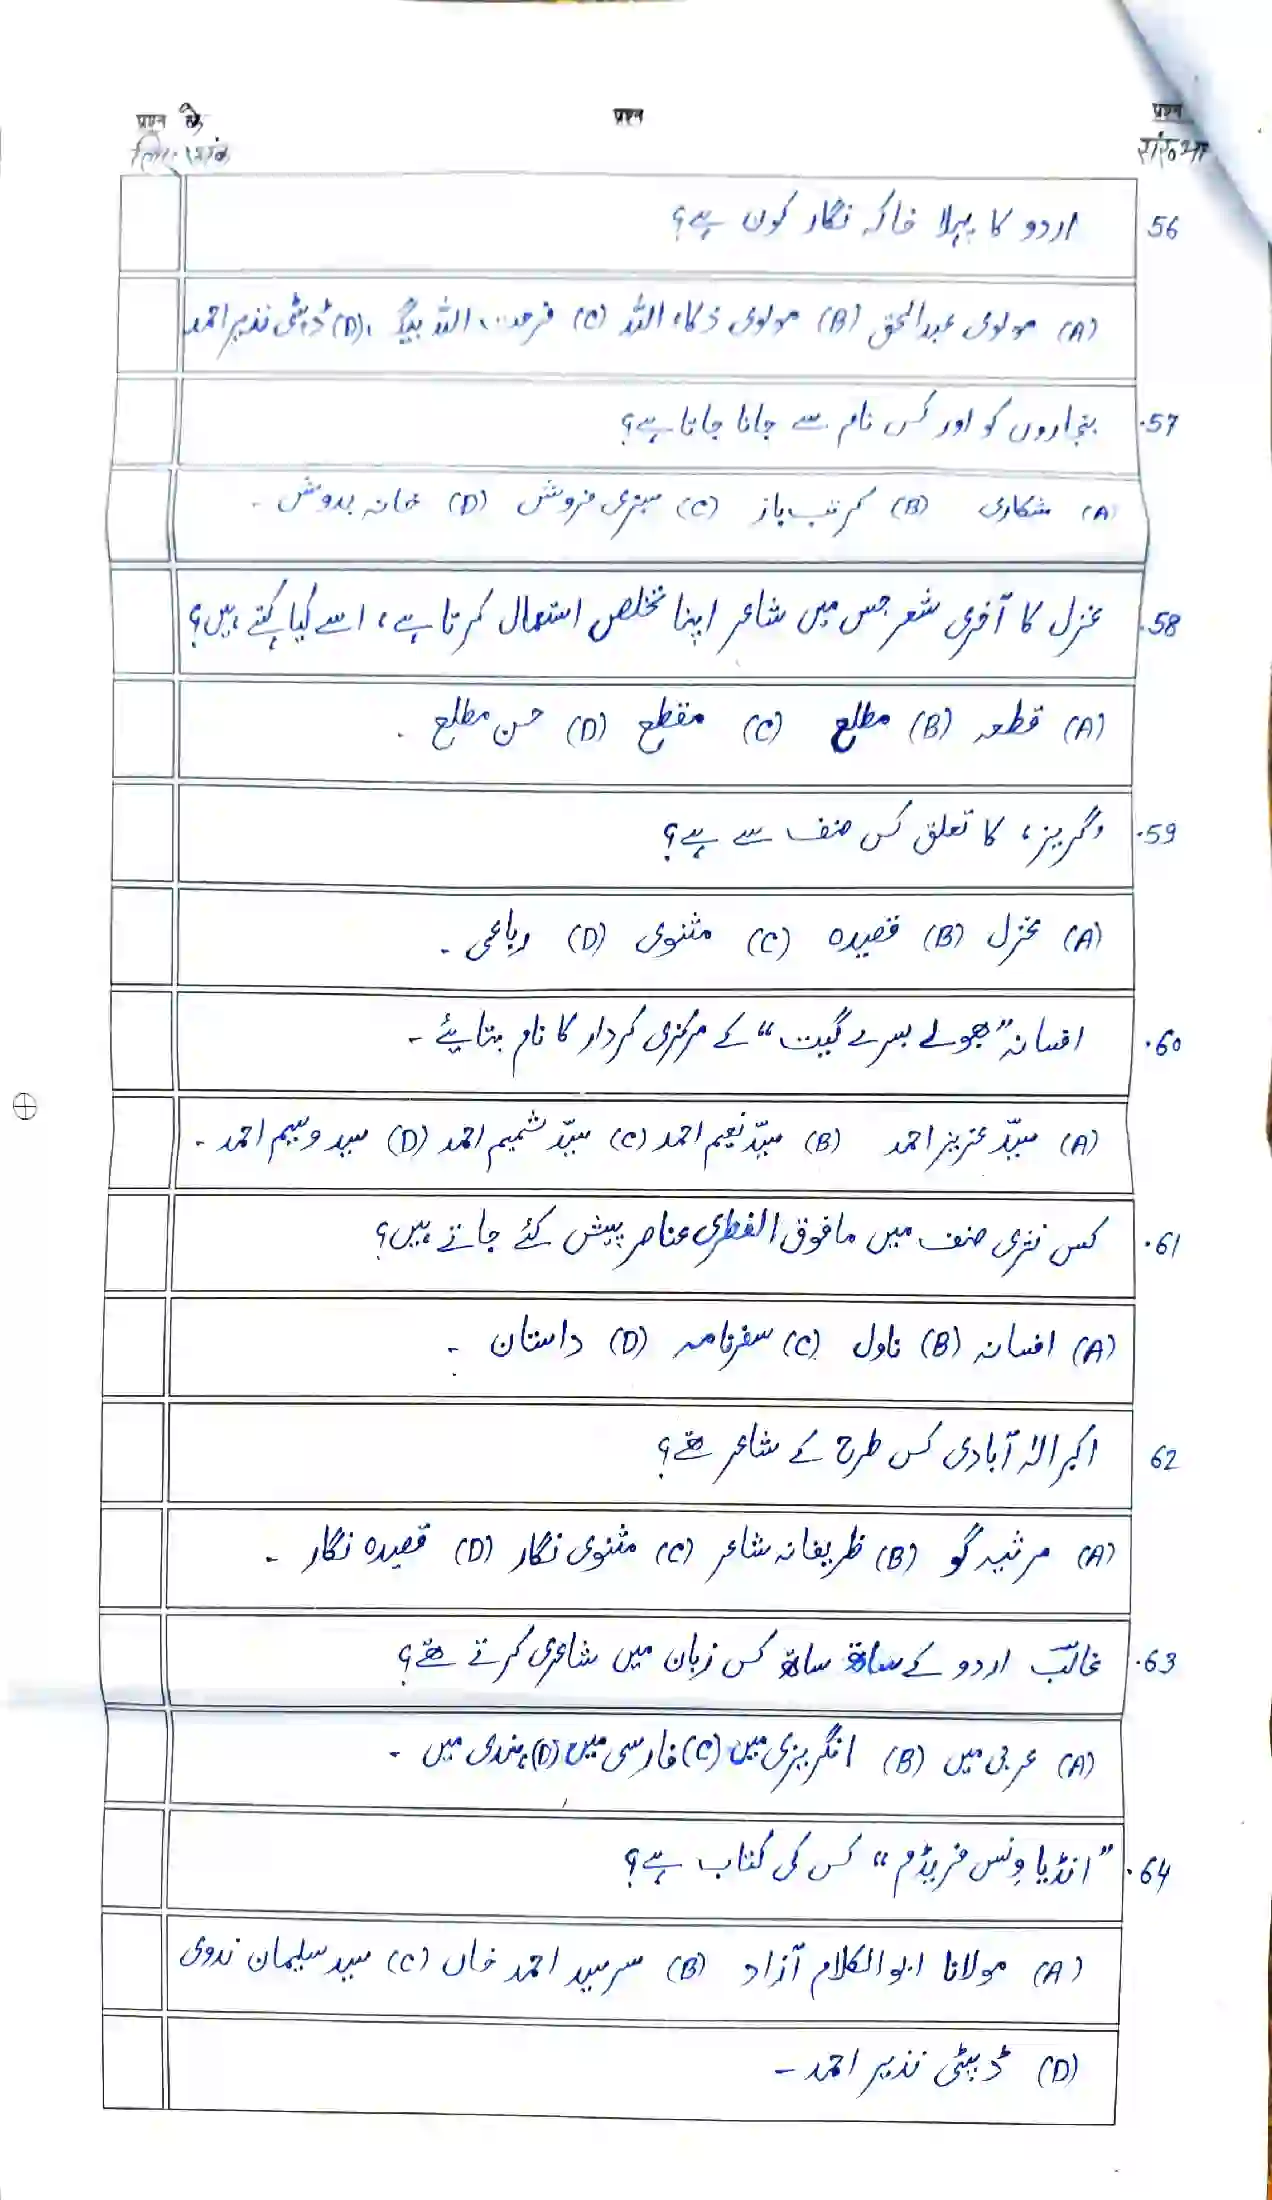 प्रश्न संख्या प्रश्न प्रश्न के लिए अंक
56 اردو کا پہلا خاکہ نگار کون ہے؟
(A) مولوی عبدالحق (B) مولوی ذکاء اللہ (C) فرحت اللہ بیگ (D) ڈپٹی نذیر احمد
57. بنجاروں کو اور کس نام سے جانا جاتا ہے؟
(A) شکاری (B) کرتب باز (C) سبزی فروش (D) خانہ بدوش ۔
58. غزل کا آخری شعر جس میں شاعر اپنا تخلص استعمال کرتا ہے، اسے کیا کہتے ہیں؟
(A) قطعہ (B) مطلع (C) مقطع (D) حسن مطلع ۔
59. ’گریز‘ کا تعلق کس صنف سے ہے؟
(A) غزل (B) قصیدہ (C) مثنوی (D) رباعی ۔
60. افسانہ ”بھولے بسرے گیت“ کے مرکزی کردار کا نام بتائیے ۔
(A) سیّد عزیز احمد (B) سیّد نعیم احمد (C) سیّد شمیم احمد (D) سید وسیم احمد ۔
61. کس نثری صنف میں مافوق الفطری عناصر پیش کئے جاتے ہیں؟
(A) افسانہ (B) ناول (C) سفرنامہ (D) داستان ۔
62 اکبر الہ آبادی کس طرح کے شاعر تھے؟
(A) مرثیہ گو (B) ظریفانہ شاعر (C) مثنوی نگار (D) قصیدہ نگار ۔
63. غالبؔ اردو کے ساتھ ساتھ کس زبان میں شاعری کرتے تھے؟
(A) عربی میں (B) انگریزی میں (C) فارسی میں (D) ہندی میں ۔
64. ”انڈیا ونس فریڈم“ کس کی کتاب ہے؟
(A) مولانا ابوالکلام آزاد (B) سرسید احمد خاں (C) سید سلیمان ندوی
(D) ڈپٹی نذیر احمد ۔